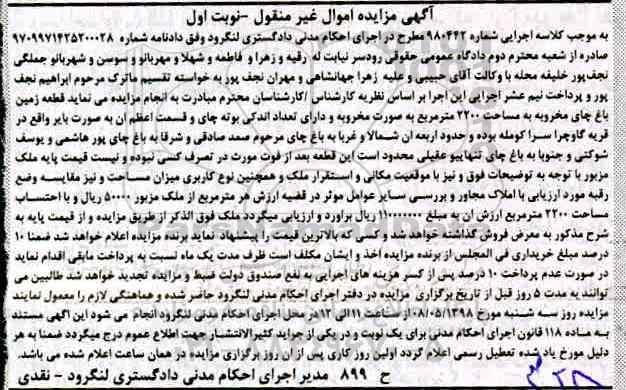 آگهی مزایده اموال غیر منقول -نوبت اول
به موجب کلاسه اجرایی شماره ۹۸۰۴۴۲ مطرح در اجرای احکام مدنی دادگستری لنگرود وفق دادنامه شماره ۹۷۰۹۹۷۱۴۲۵۲۰۰۰۲۸
صادره از شعبه محترم دوم دادگاه عمومی حقوقی رودسر نیابت له رقیه و زهرا و فاطمه و شهلا و مهربانو و سوسن و شهربانو جملگی
نجف پور خلیفه محله با وکالت آقای حبیبی و علیه زهرا جهانشاهی و مهران نجف پور به خواسته تقسیم ماترک مرحوم ابراهیم نجف
پور و پرداخت نیم عشر اجرایی این اجرا بر اساس نظریه کارشناس /کارشناسان محترم مبادرت به انجام مزایده می نماید قطعه زمین
باغ چای مخروبه به مساحت ۲۲۰۰ مترمربع به صورت مخروبه و دارای تعداد اندکی بوته چای و قسمت اعظم آن به صورت بایر واقع در
قریه گاوچرا سرا کومله بوده و حدود اربعه ان شمالا و غربا به باغ چای مرحوم صمد صادقی و شرقا به باغ چای پور هاشمی و یوسف
شوکتی و جنوبا به باغ چای تنهاییو عقیلی محدود است این قطعه بعد از فوت مورث در تصرف کسی نبوده و نیست قیمت پایه ملک
مزبور با توجه به توضیحات فوق و نیز با موقعیت مکانی و استقرار ملک و همچنین نوع کاربری میزان مساحت و نیز مقایسه وضع
رقبه مورد ارزیابی با املاک مجاور و بررسی سایر عوامل موثر در قضیه ارزش هر مترمربع از ملک مزبور ۵۰۰۰۰ ریال و با احتساب
مساحت ۲۲۰۰ مترمربع ارزش ان به مبلغ ۱۱۰۰۰۰۰۰۰ ریال براورد و ارزیابی میگردد ملک فوق الذکر از طریق مزایده و از قیمت پایه به
شرح مذکور به معرض فروش گذاشته خواهد شد و کسی که بالاترین قیمت را پیشنهاد نماید برنده مزایده اعلام خواهد شد ضمنا ۱۰
درصد مبلغ خریداری فی المجلس از برنده مزایده اخذ و ایشان مکلف است ظرف مدت یک ماه نسبت به پرداخت مابقی اقدام نماید
در صورت عدم پرداخت ۱۰ درصد پس از کسر هزینه های اجرایی به نفع صندوق دولت ضبط و مزایده تجدید خواهد شد طالبین می
توانند به مدت ۵ روز قبل از تاریخ برگزاری مزایده در دفتر اجرای احکام مدنی لنگرود حاضر شده و هماهنگی لازم را معمول نمایند
مزایده روز سه شنبه مورخ ۰۸/۰۵/۱۳۹۸ از ساعت ۱۱الی ۱۲در محل اجرای احکام مدنی لنگرود انجام می شود این آگهی مستند
به ماده ۱۱۸ قانون اجرای احکام مدنی برای یک نوبت و در یکی از جراید کثیرالانتشار جهت اطلاع عموم درج میگردد ضمنا به هر
دلیل مورخ یاد شده تعطیل رسمی اعلام گردد دوم اولین روز کاری پس از ان روز برگزاری مزایده در همان ساعت اعلام شده می باشد.
ح ۸۹۹ مدیر اجرای احکام مدنی دادگستری لنگرود - نقدی